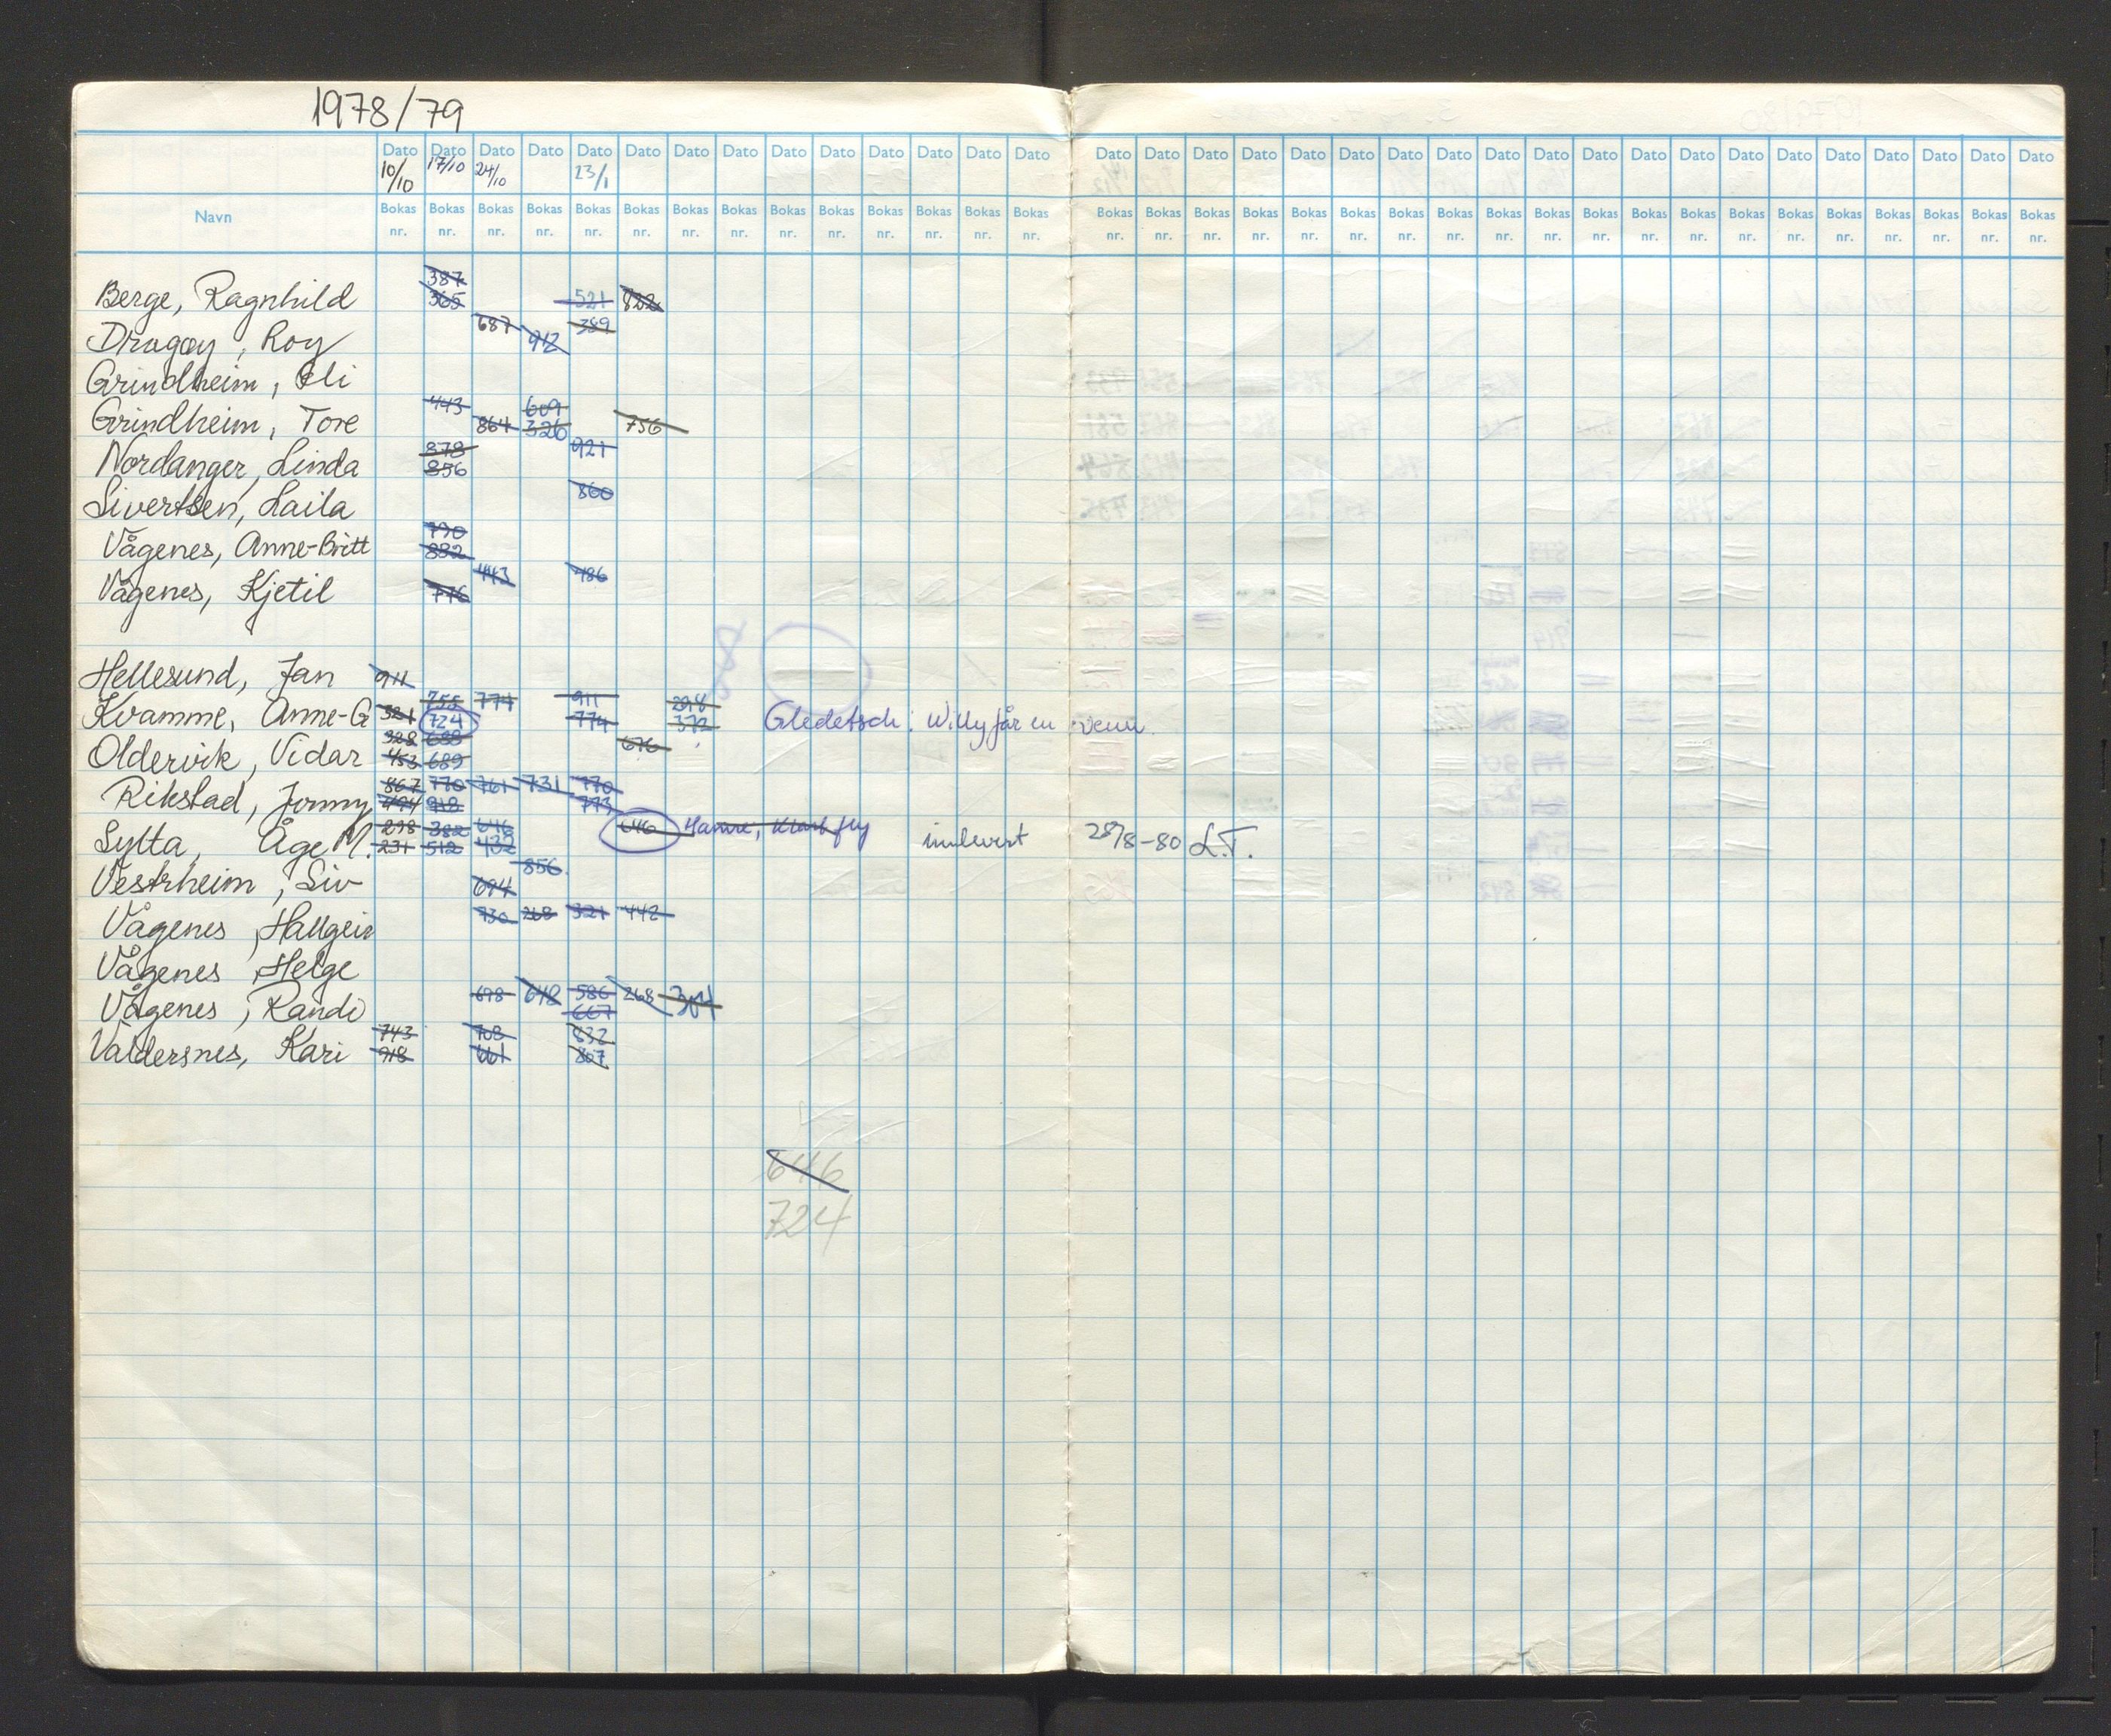 1978/79
Dato Dato Dato Dato Dato Dato Dato Dato Dato Dato Dato Dato Dato Dato Dato Dato Dato Dato Dato Dato Dato Dato Dato Dato Dato Dato Dato Dato Dato Dato Dato Dato Dato Dato
10/10 17/10 24/10 23/1
Navn
Bokas Bokas Bokas Bokas Bokas Bokas Bokas Bokas Bokas Bokas Bokas Bokas Bokas Bokas Bokas Bokas Bokas Bokas Bokas Bokas Bokas Bokas Bokas Bokas Bokas Bokas Bokas Bokas Bokas Bokas Bokas Bokas Bokas Bokas
nr. nr. nr. nr. nr. nr. nr. nr. nr. nr. nr. nr. nr. nr. nr. nr. nr. nr. nr. nr. nr. nr. nr. nr. nr. nr. nr. nr. nr. nr. nr. nr. nr. nr.
387
Berge, Ragnhild 365 521 822
687 389
Dragøy, Roy 912
Grindheim, Eli
443 609
Grindheim, Tore 864 326 756
878 921
Nordanger, Linda 856
860
Sivertsen, Laila
790
Vågenes, Anne-Britt 882
443 486
Vågenes, Kjetil 776
Hellesund, Jan 911
755 774 911 298
Kvamme, Anne-G 321 724 774 372 Gledetsch: Willy får en venn
328 688 676
Oldervik, Vidar 453 689
867 770 761 731 770
Rikstad, Jonny 494 918 773
298 382 646 646 Hamre, Klart fly
Sylta, Åge M. 231 512 432 innlevert 28/8-80 L.T.
856
Vestrheim, Siv 694
730 268 321 442
Vågenes, Hallgeir
Vågenes, Helge
698 648 586 268 304
Vågenes, Randi 667
743 708 832
Valdersnes, Kari 918 661 867
646
724